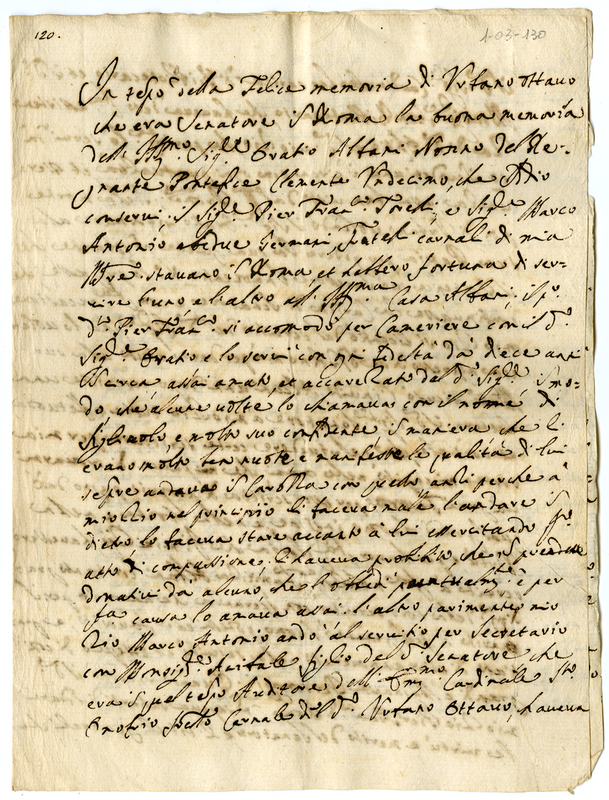 120.
1-03-130
In tẽpo della Felice memoria di Vrbano ottauo
che era Senatore ĩ Roma la buona memoria
dell' Ill.mo Sig.re Oratio Albani Nonno del Re-
gnante Pontefice Clemente Vndecimo, che Iddio
conserui, il Sig.re Pier Fran.co e Sig.re Marco
Antonio abedue Germani, Fratelli carnali di mia
M.dre stauano ĩ Roma, et hebbero fortuna di ser-
uire l'uno e l'altro all' Ill.ma Casa Albani, il p.o
d.o Pier Fran.co si accomodò per Cameriere con il d.o
Sig.re Oratio e lo seruì con ogni fedeltà da diece anni
ĩ circa assai amato, et accarezzato dal d.o Sig.re ĩ mo-
do che alcune uolte lo chiamaua con il nome di
figliuolo, e molto suo confidente, ĩ maniera che li
erano molto ben note, e manifeste le qualità di lui
sẽpre andaua ĩ Carozza con questo perche a
mio zio nel principio li faceua male l'andare ĩ
dietro lo faceua stare accanto a lui essercitando q.o
atto di compassione, l'haueua prohibito, che nõ prendesse
donatiui da alcuno, che l'obbedì puntualm.te e per
q.ta causa lo amaua assai. l'altro parimente mio
Zio Marco Antonio andò al seruitio per Secretario
con Monsig.re Anibale figlio del d.o Senatore che
era ĩ quel tẽpo Auditore dell' Em.mo Cardinale S.to
Onofrio fratello Carnale di d.o Vrbano Ottauo, haueua